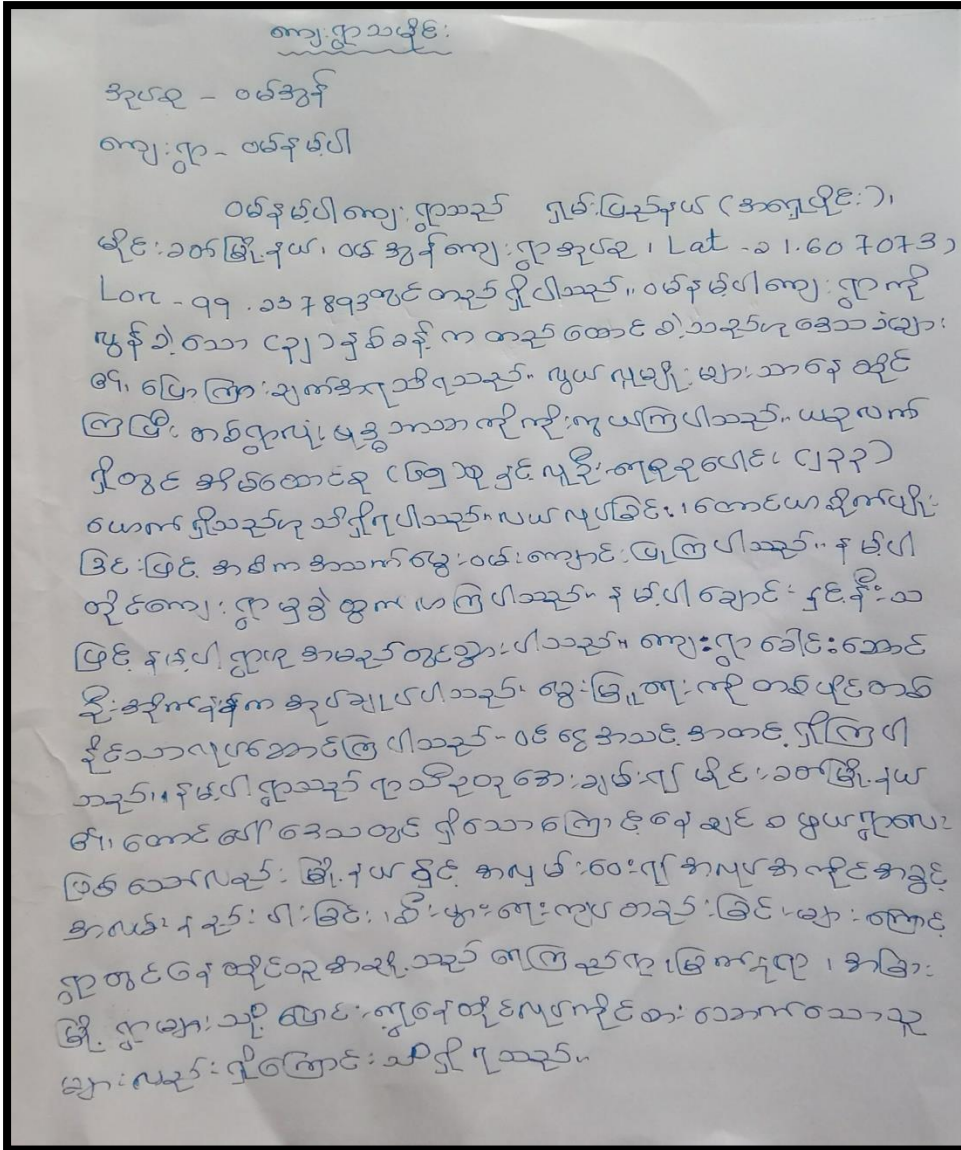 ကျေးရွာသမိုင်း
အုပ်စု - ဝမ်အွန်
ကျေးရွာ - ဝမ်နမ့်ပါ
ဝမ်နမ့်ပါကျေးရွာသည် ရှမ်းပြည်နယ် (အရှေ့ပိုင်း)၊
မိုင်းခတ်မြို့နယ်၊ ဝမ်အွန်ကျေးရွာအုပ်စု၊ Lat - ၁ 1.607073,
Lon - 99.၁37893တွင် တည်ရှိပါသည်။ ဝမ်နမ့်ပါကျေးရွာကို
လွန်ခဲ့သော နှစ်ခန့်က တည်ထောင်ခဲ့သည်ဟု ဒေသခံများ
၏ ပြောကြားချက်အရ သိရသည်။ လွယ်လူမျိုးများသာနေထိုင်
ကြပြီး တစ်ရွာလုံး ဗုဒ္ဓဘာသာကိုကိုးကွယ်ကြပါသည်။ ယခုလက်
ရှိတွင် အိမ်ထောင်စု နှင့် လူဦးရေစုစုပေါင်း (၂၃၃)
ယောက်ရှိသည်ဟု သိရှိရပါသည်။ လယ်လုပ်ခြင်း၊ တောင်ယာစိုက်ပျိုး
ခြင်းဖြင့် အဓိကအသက်မွေးဝမ်းကျောင်းပြုကြပါသည်။ နမ့်ပါ
တိုင်ကျေးရွာမှခွဲထွက်လာကြပါသည်။ နမ့်ပါချောင်းနှင့်နီးသ
ဖြင့် နမ့်ပါရွာဟု အမည်တွင်သွားပါသည်။ ကျေးရွာခေါင်းဆောင်
ဦးအိုက်နန်က အုပ်ချုပ်ပါသည်။ မွေးမြူရေးကို တစ်ပိုင်တစ်
နိုင်သာလုပ်ဆောင်ကြပါသည်။ ဝင်ငွေအသင့်အတင့်ရှိကြပါ
သည်။ နမ့်ပါရွာသည် ရာသီဥတု အေးချမ်း၍ မိုင်းခတ်မြို့နယ်
၏ တောင်ပေါ်ဒေသတွင် ရှိသောကြောင့် နေချင်စဖွယ်ရွာလေး
ဖြစ်သော်လည်း မြို့နယ်နှင့် အလှမ်းဝေး၍ အလုပ်အကိုင်အခွင့်
အလမ်းနည်းပါးခြင်း၊ စီးပွားရေးကျပ်တည်းခြင်းများကြောင့်
ရွာတွင်နေထိုင်သူအချို့သည် ရေကြည်ရာ၊ မြက်နုရာ၊ အခြား
မြို့ရွာများသို့ ပြောင်းရွှေ့နေထိုင်လုပ်ကိုင်စားသောက်သောသူ
များလည်းရှိကြောင်း သိရှိရသည်။